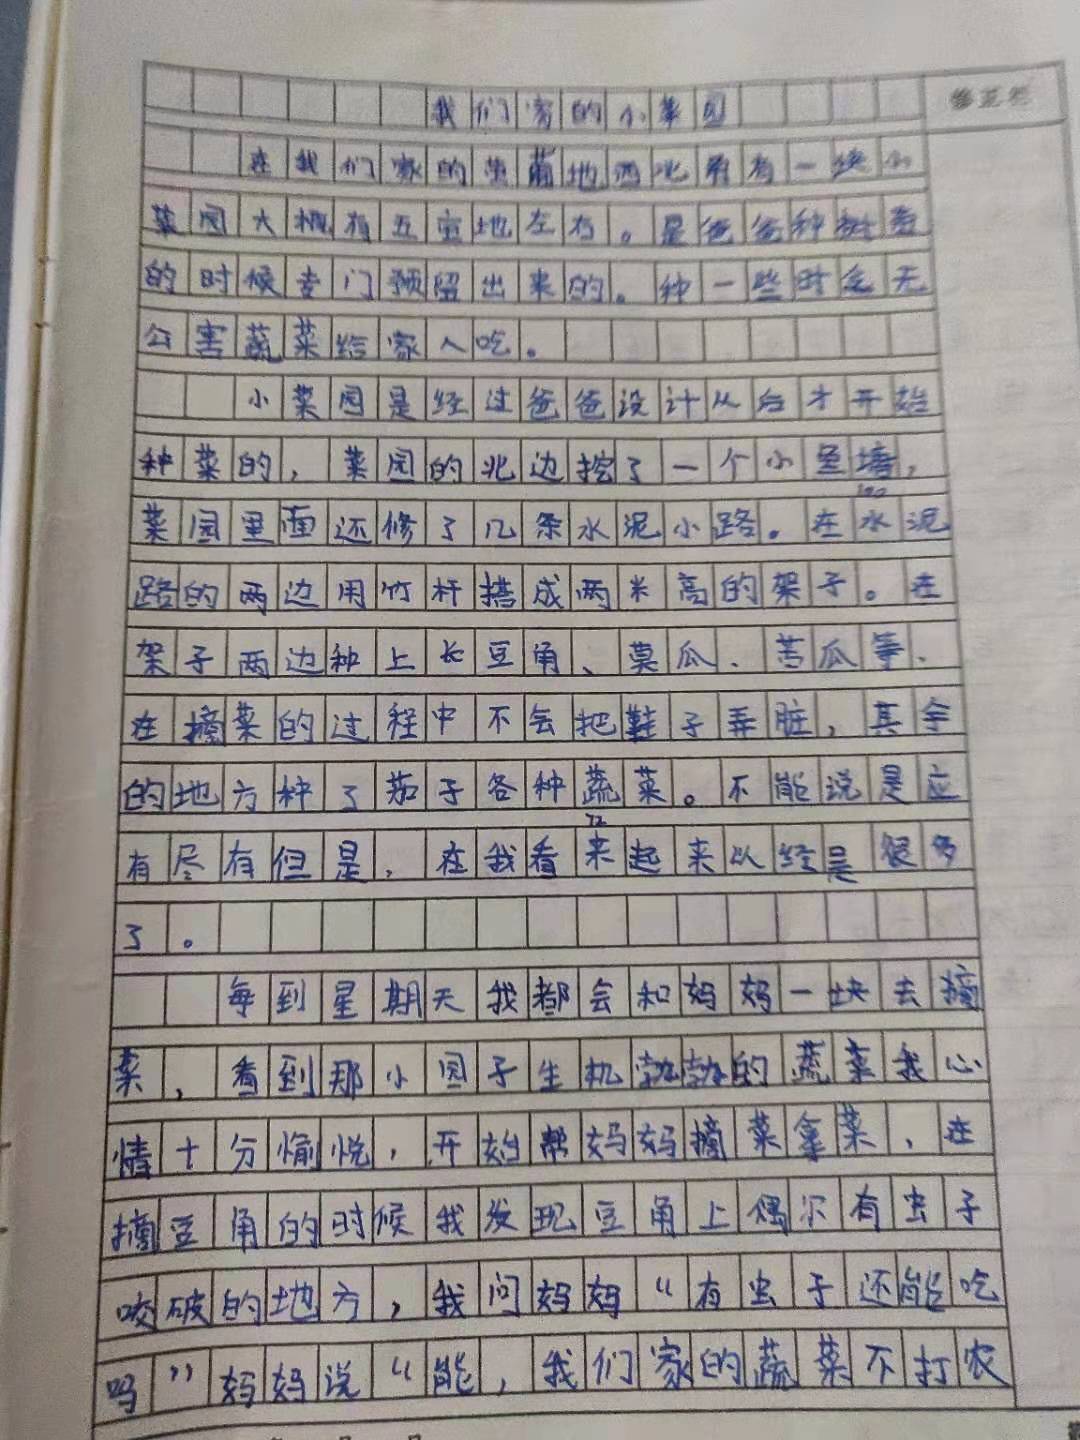 我们家的小菜园
修正栏
在我们家的地西北角有一块小
菜园大概有五亩地左右。是爸爸种树苗
的时候专门预留出来的。种一些时令无
公害蔬菜给家人吃。
小菜园是经过爸爸设计从后才开始
种菜的，菜园的北边挖了一个小鱼塘，
菜园里面还修了几条水泥小路。在水泥
路的两边用竹杆搭成两米高的架子。在
架子两边种上长豆角、黄瓜、苦瓜等、
在摘菜的过程中不会把鞋子弄脏，其余
的地方种了茄子各种蔬菜。不能说是应
有尽有但是，在我看来起来以经是很多
了。
每到星期天我都会和妈妈一块去摘
菜，看到那小园子生机勃勃的蔬菜我心
情十分愉悦，开始帮妈妈摘菜拿菜，在
摘豆角的时候我发现豆角上偶尔有虫子
咬破的地方，我问妈妈“有虫子还能吃
吗”妈妈说“能，我们家的蔬菜不打农